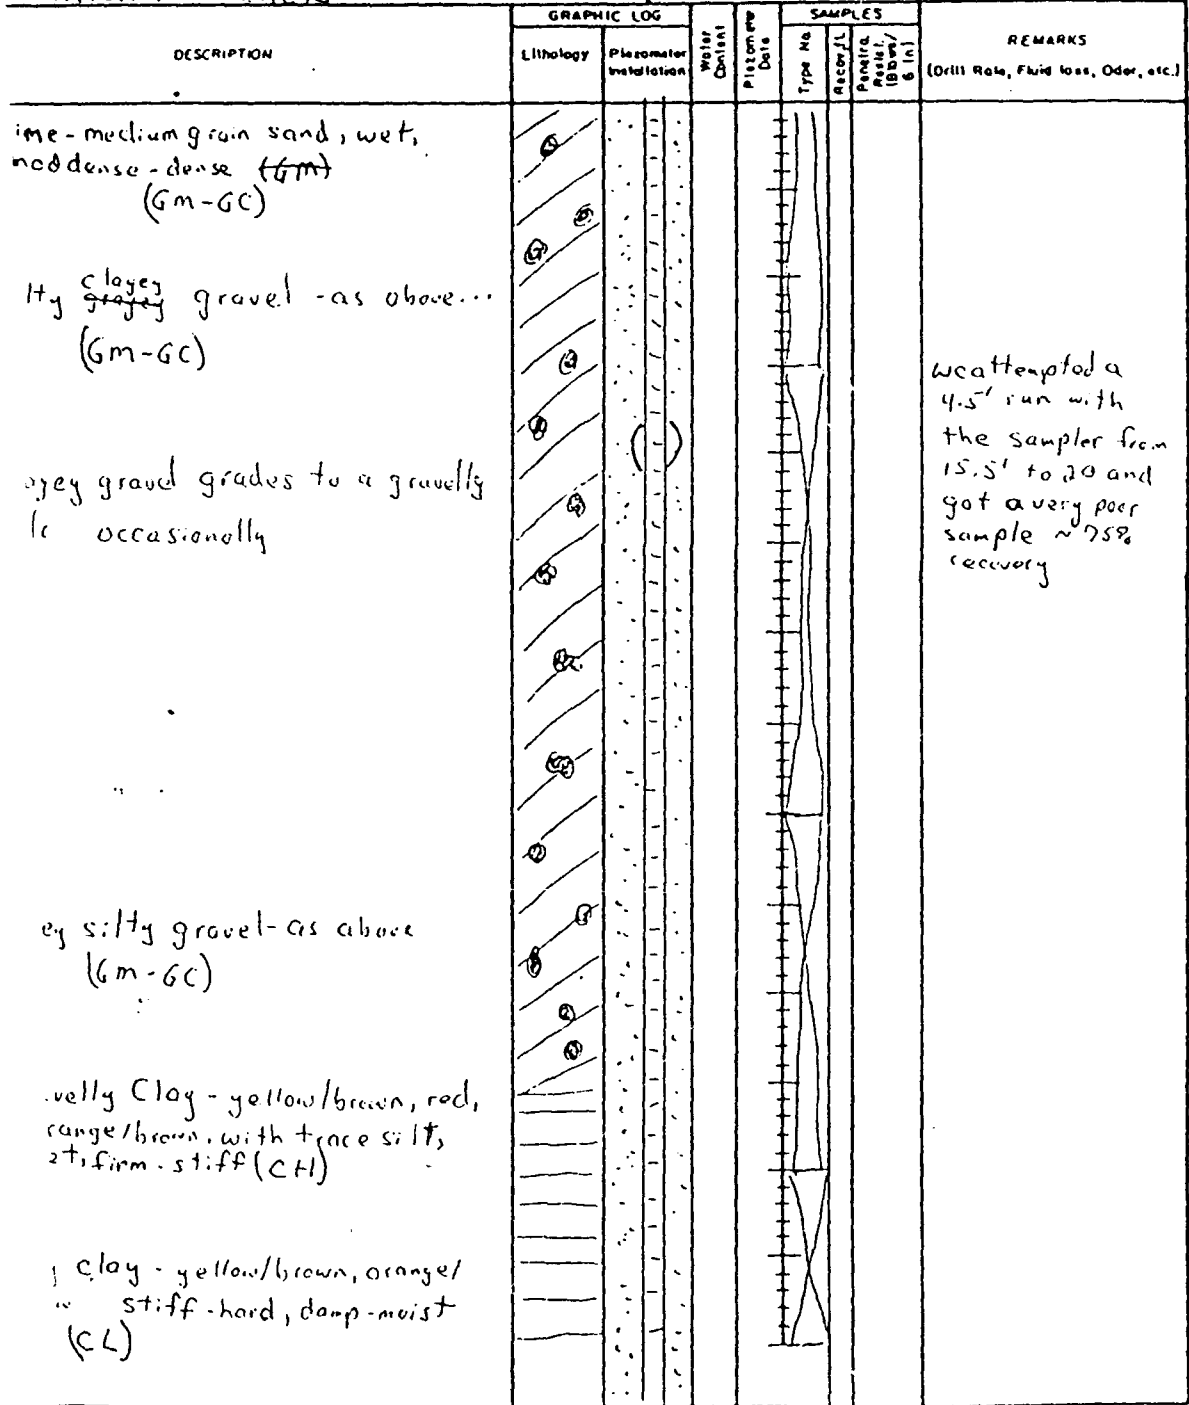 GRAPHIC LOG
SAMPLES
DESCRIPTION
Lithology
Piezometer
Installation
Water
Content
Piezometer
Data
Type No.
Recov.
Penetra.
Resist.
(Blows/
6 In)
REMARKS
(Drill Rate, Fluid loss, Odor, etc.)
ine-medium grain sand, wet,
mod dense-dense (GM)
(Gm-GC)
lty clayey gravel -as above...
(Gm-GC)
ayey gravel grades to a gravelly
occasionally
ey silty gravel-as above
(Gm-GC)
velly Clay - yellow/brown, red,
range/brown, with trace silt,
et, firm-stiff (CH)
clay - yellow/brown, orange/
stiff-hard, damp-moist
(CL)
we attempted a
4.5' run with
the sampler from
15.5' to 20 and
got a very poor
sample ~75%
recovery